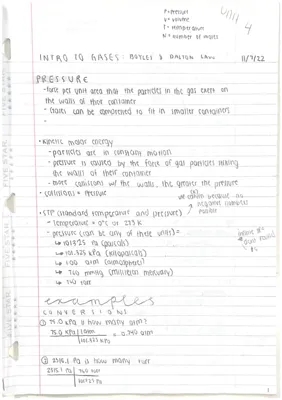 P = Pressure
V = volume
T = temperature
n = number of moles
Unit 4
INTRO TO GASES: BOYLES & DALTON LAWS 11/9/22
PRESSURE
- force per unit area that the particles in the gas exert on
the walls of their container
- Gases can be compressed to fit in smaller containers
- Kinetic molar energy
- particles are in constant motion
- pressure is caused by the force of gas particles hitting
the walls of their container
- more collisions w/ the walls, the greater the pressure
- collisions = pressure
we
because no
matter
- STP (standard temperature and pressure)
- temperature = 0°C or 273 K
- pressure (can be any of these units) =
↳ 101325 Pa (pascals)
↳ 101.325 kPa (kilopascals)
↳ 1.00 atm (atmospheres)
↳ 760 mmHg (millimeters mercury)
↳ 760 torr
don't round
examples
CONVERSIONS
① 75.0 kPa is how many atm?
75.0 kPa | 1 atm = 0.740 atm
101.325 kPa
② 2515.1 Pa is how many torr
2515.1 Pa | 760 torr
101325 Pa
FIVE STAR
1